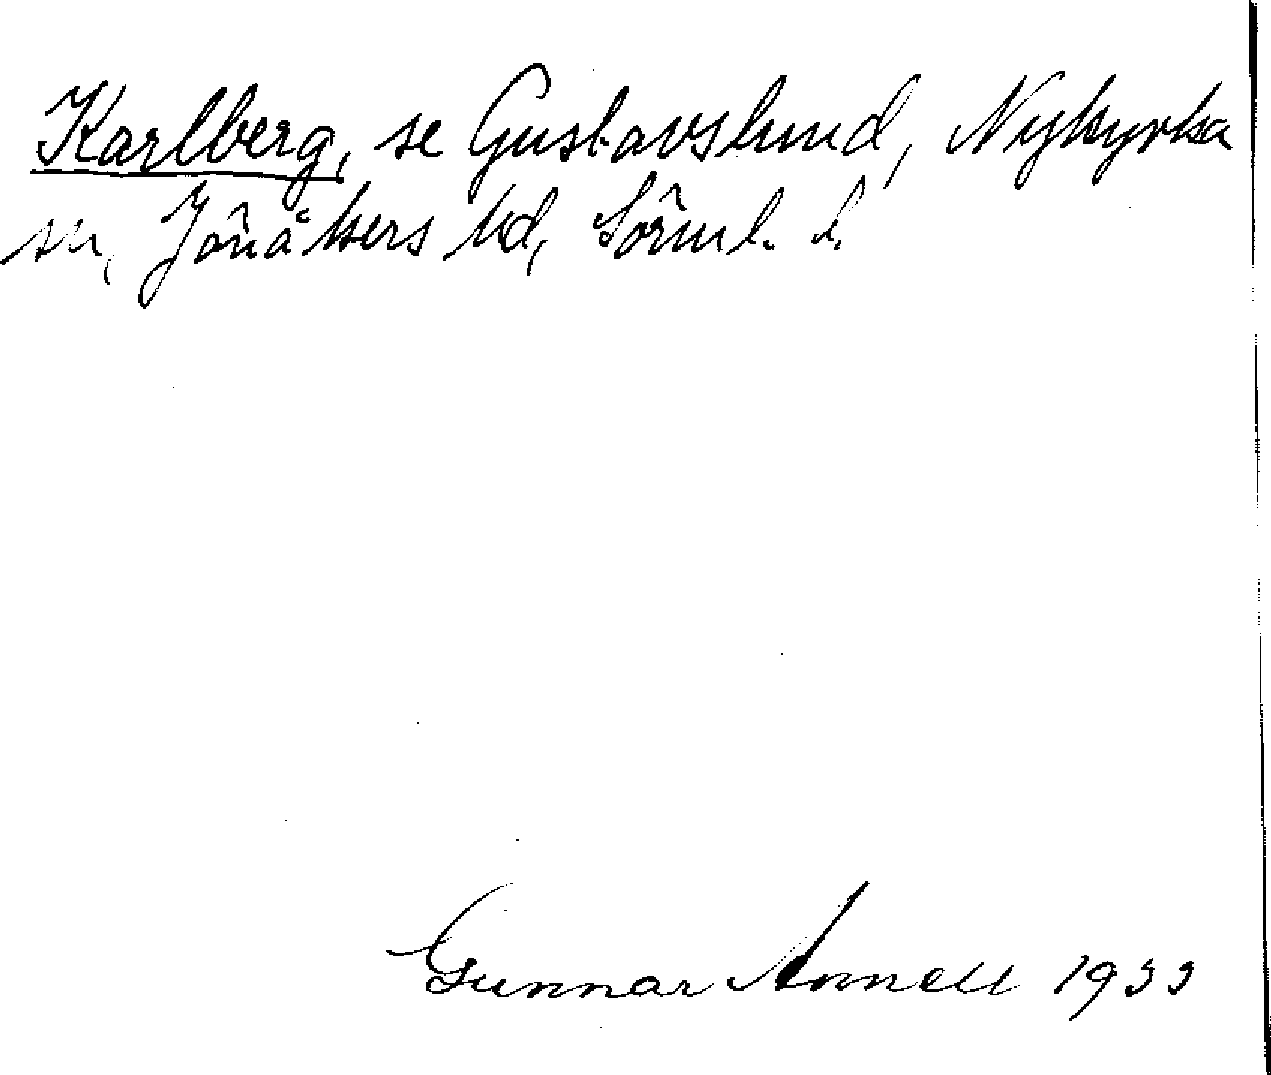 Karlberg, se Gustavslund, Nykyrka
sn, Jönåkers hd, Sörml. l.
Gunnar Annell 1933